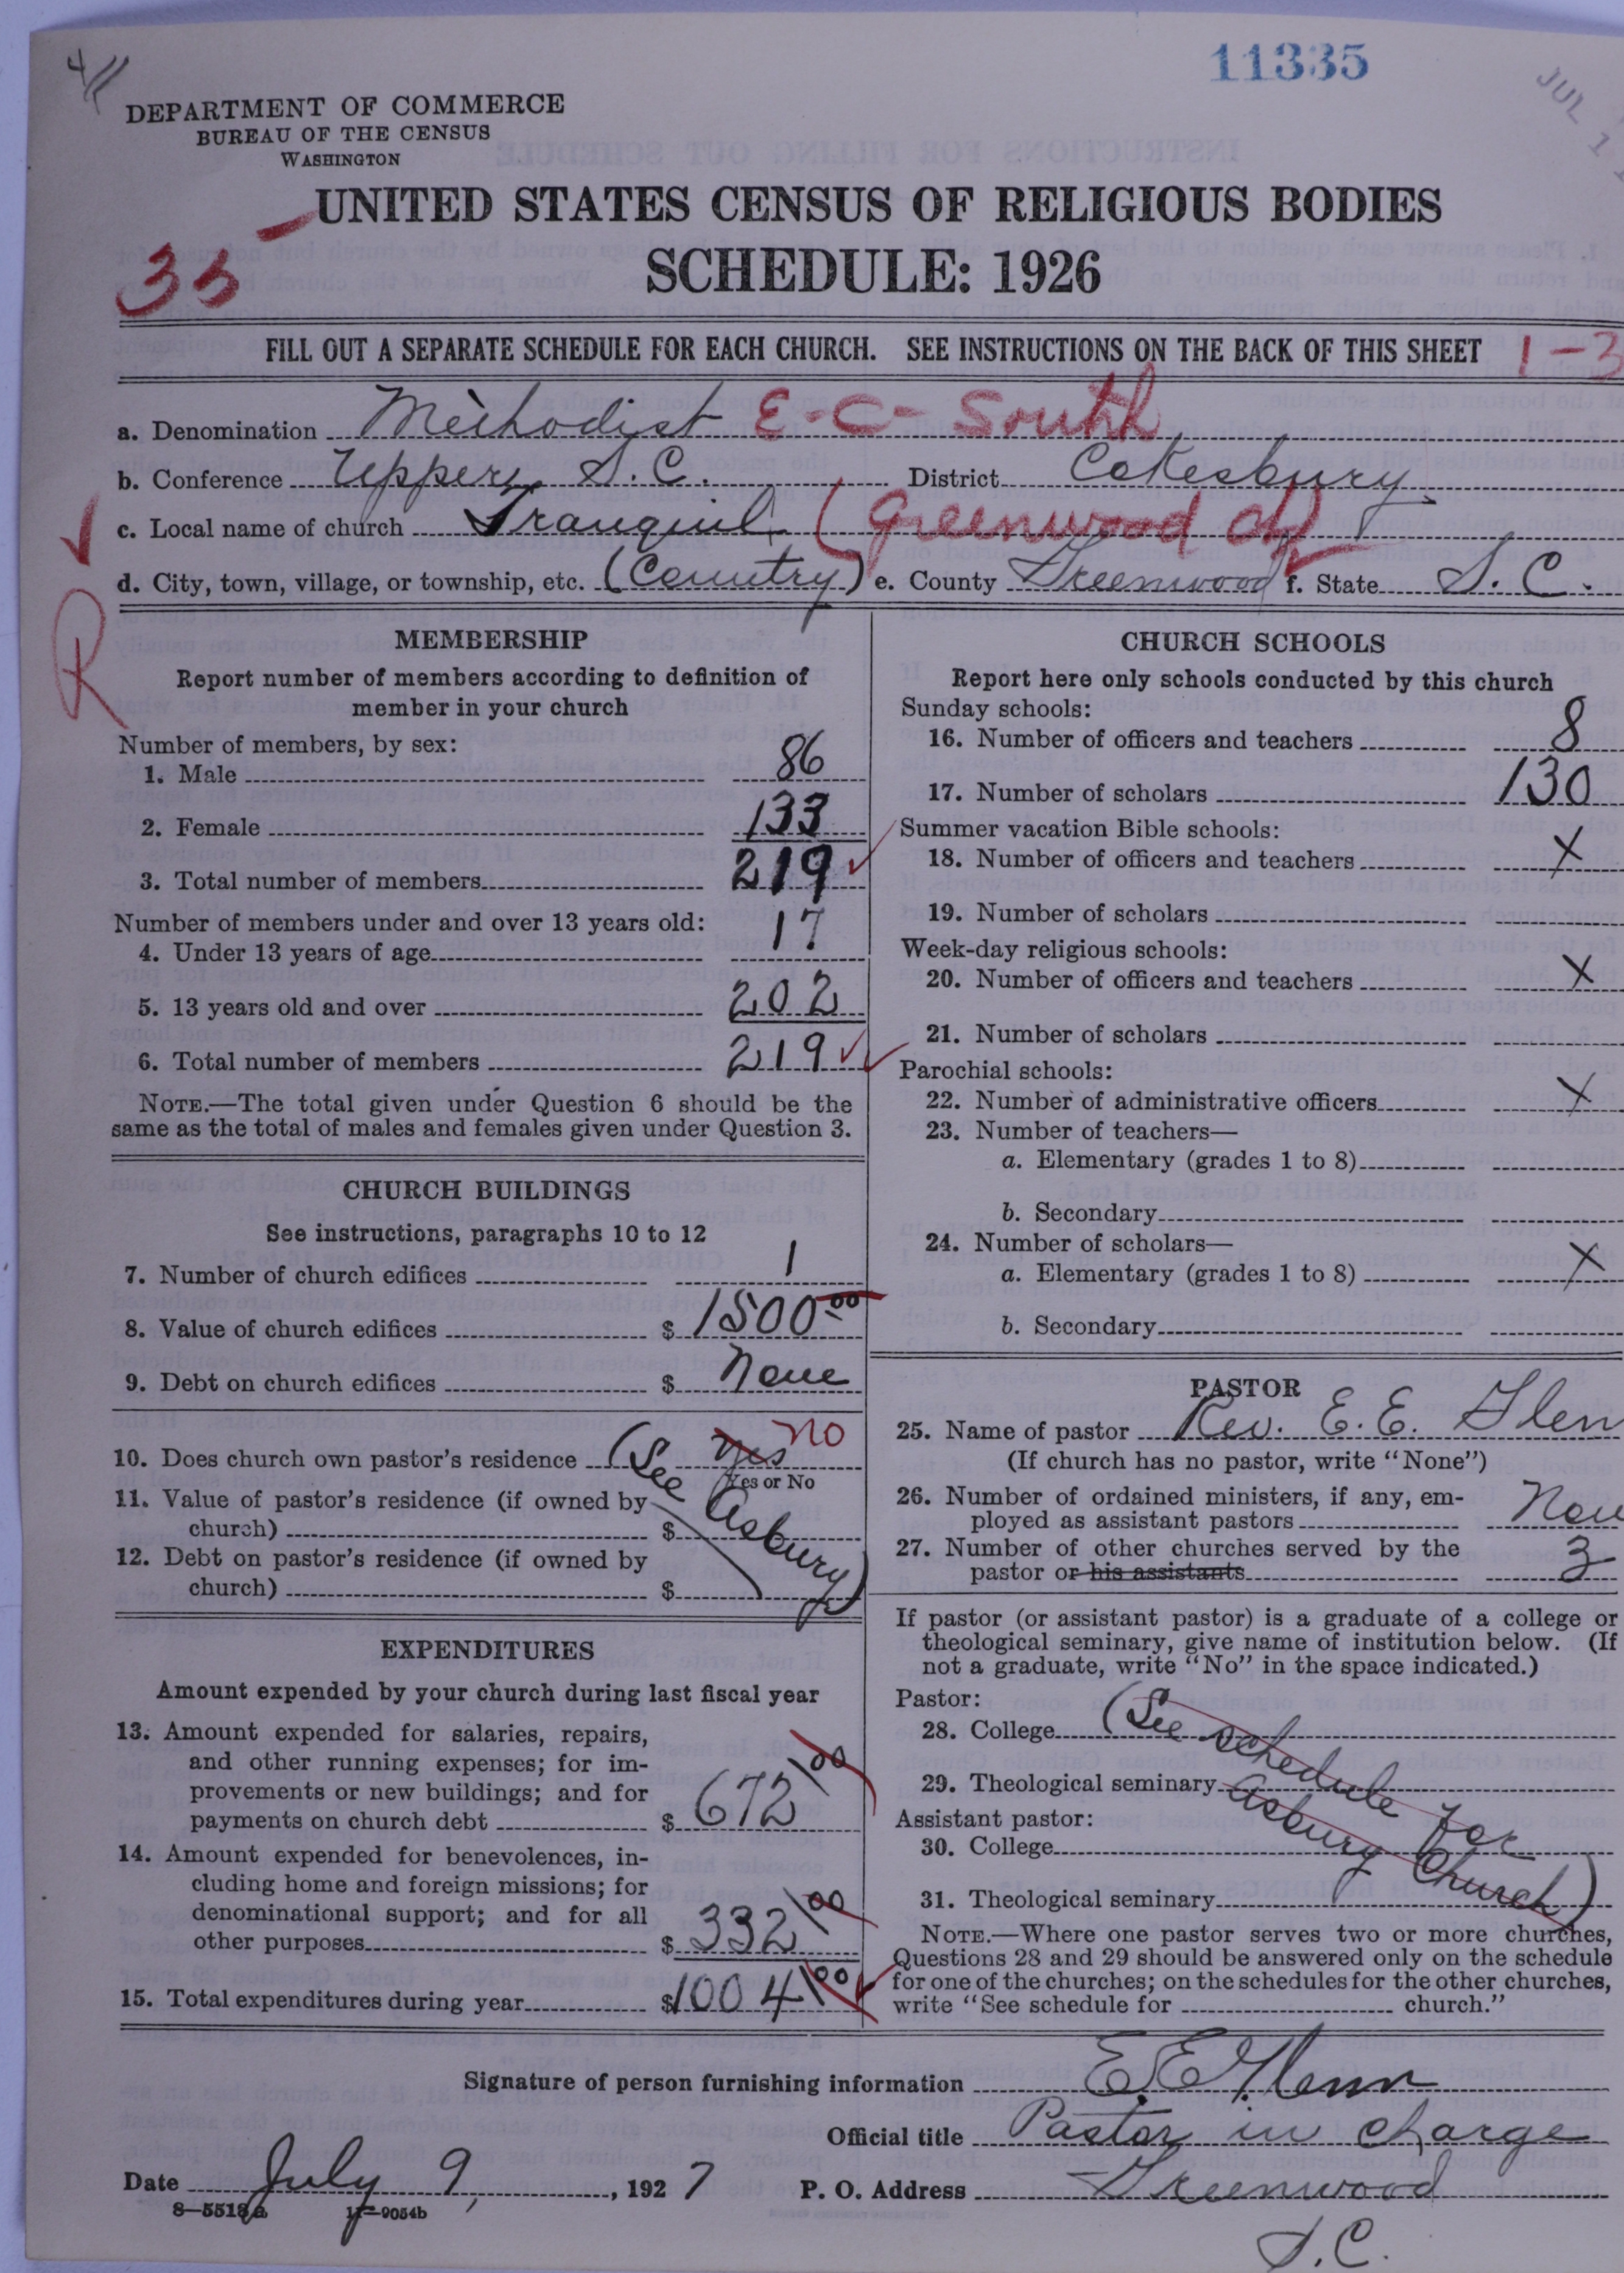 11335
JUL 1
DEPARTMENT OF COMMERCE
BUREAU OF THE CENSUS
WASHINGTON
UNITED STATES CENSUS OF RELIGIOUS BODIES
35-
SCHEDULE: 1926
FILL OUT A SEPARATE SCHEDULE FOR EACH CHURCH. SEE INSTRUCTIONS ON THE BACK OF THIS SHEET 1-3
a. Denomination Methodist E-C- South
b. Conference Upper S.C. District Cokesbury
c. Local name of church Tranquil (Greenwood ch)
d. City, town, village, or township, etc. (Country) e. County Greenwood f. State S. C.
R
MEMBERSHIP
Report number of members according to definition of
member in your church
Number of members, by sex:
1. Male 86
2. Female 133
3. Total number of members 219
Number of members under and over 13 years old:
4. Under 13 years of age 17
5. 13 years old and over 202
6. Total number of members 219
NOTE.—The total given under Question 6 should be the
same as the total of males and females given under Question 3.
CHURCH BUILDINGS
See instructions, paragraphs 10 to 12
7. Number of church edifices 1
8. Value of church edifices $ 1500 00
9. Debt on church edifices $ None
10. Does church own pastor's residence yes no
Yes or No
(See Asbury)
11. Value of pastor's residence (if owned by
church) $
12. Debt on pastor's residence (if owned by
church) $
EXPENDITURES
Amount expended by your church during last fiscal year
13. Amount expended for salaries, repairs,
and other running expenses; for im-
provements or new buildings; and for
payments on church debt $ 672 00
14. Amount expended for benevolences, in-
cluding home and foreign missions; for
denominational support; and for all
other purposes $ 332 00
15. Total expenditures during year $ 1004 00
CHURCH SCHOOLS
Report here only schools conducted by this church
Sunday schools:
16. Number of officers and teachers 8
17. Number of scholars 130
Summer vacation Bible schools:
18. Number of officers and teachers X
19. Number of scholars
Week-day religious schools:
20. Number of officers and teachers X
21. Number of scholars
Parochial schools:
22. Number of administrative officers X
23. Number of teachers—
a. Elementary (grades 1 to 8)
b. Secondary
24. Number of scholars—
a. Elementary (grades 1 to 8) X
b. Secondary
PASTOR
25. Name of pastor Rev. E. E. Glen
(If church has no pastor, write "None")
26. Number of ordained ministers, if any, em-
ployed as assistant pastors Non
27. Number of other churches served by the
pastor or his assistants 3
If pastor (or assistant pastor) is a graduate of a college or
theological seminary, give name of institution below. (If
not a graduate, write "No" in the space indicated.)
Pastor:
28. College (See schedule for
29. Theological seminary Asbury Church)
Assistant pastor:
30. College
31. Theological seminary
NOTE.—Where one pastor serves two or more churches,
Questions 28 and 29 should be answered only on the schedule
for one of the churches; on the schedules for the other churches,
write "See schedule for church."
Signature of person furnishing information E. E. Glenn
Official title Pastor in charge
Date July 9, 1927 P. O. Address Greenwood
8-5518a 11-9054b
S.C.